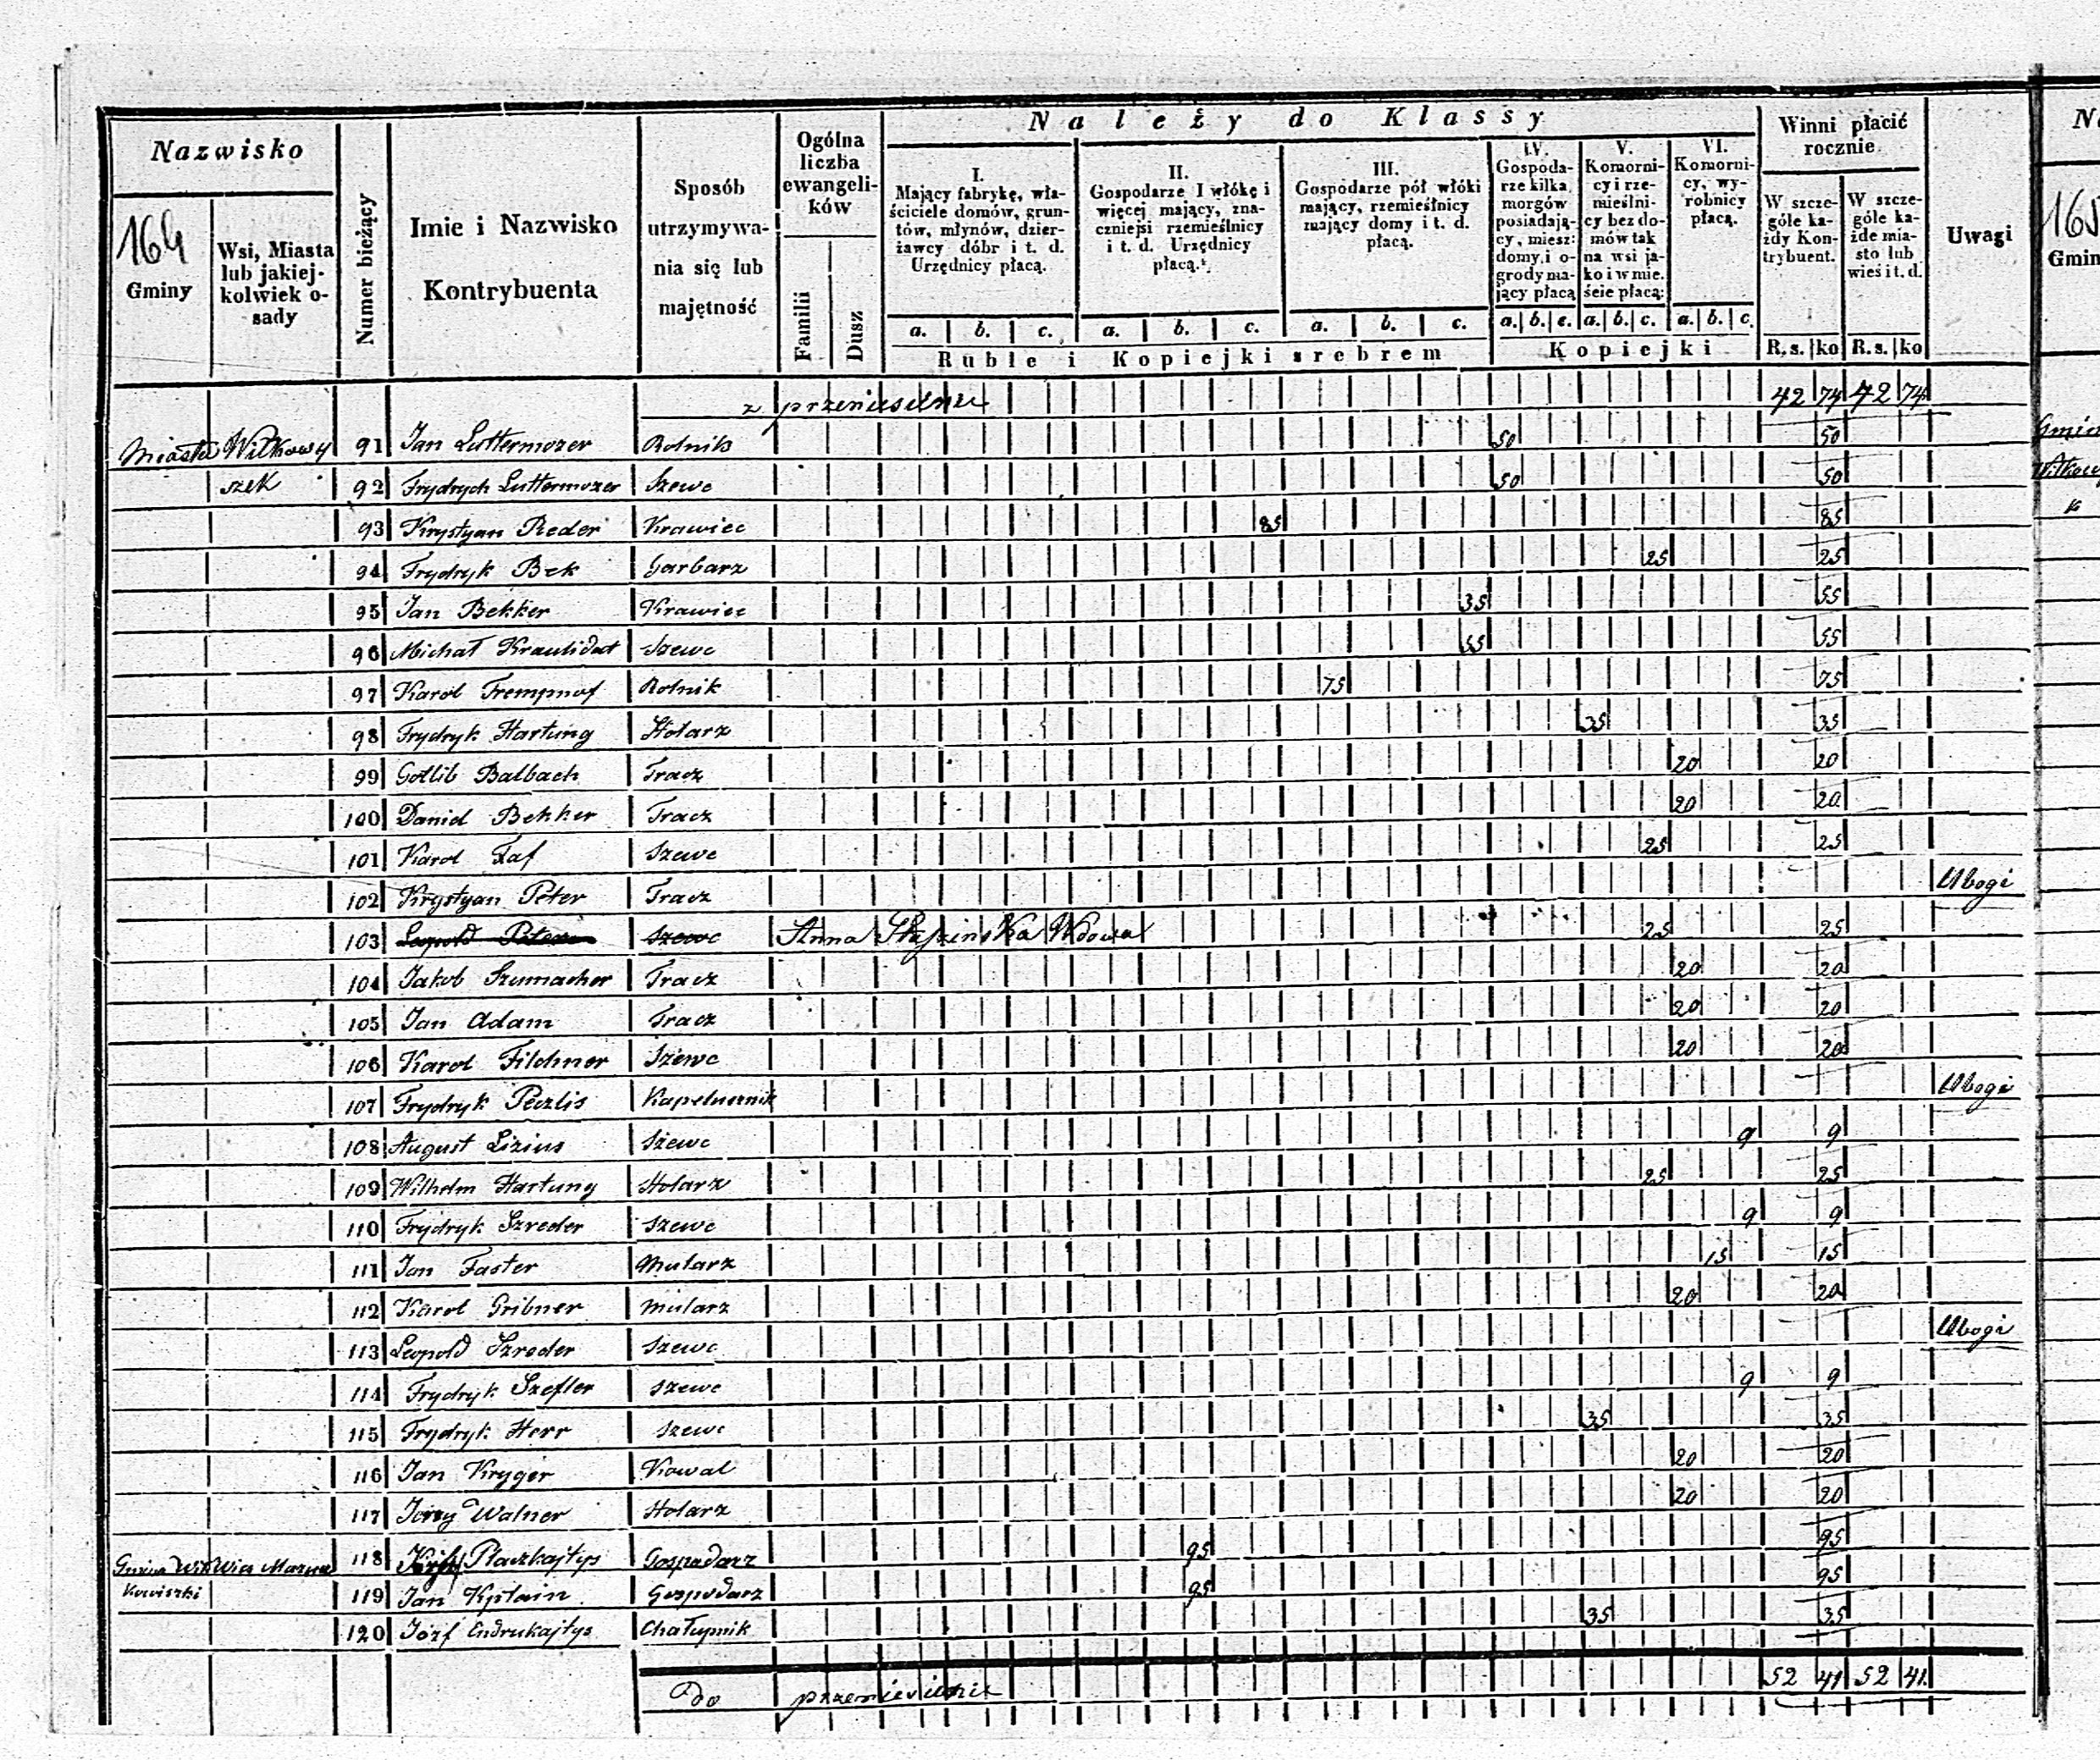 Należy do Klassy
Nazwisko
164
Gminy
Wsi, Miasta
lub jakiej-
kolwiek o-
sady
Numer bieżący
Imie i Nazwisko
Kontrybuenta
Sposób
utrzymywa-
nia się lub
majętność
Ogólna
liczba
ewangeli-
ków
Familii
Dusz
I.
Mający fabrykę, wła-
ściciele domów, grun-
tów, młynów, dzier-
żawcy dóbr i t. d.
Urzędnicy płacą.
II.
Gospodarze I włókę i
więcej mający, zna-
czniejsi rzemieślnicy
i t. d. Urzędnicy
płacą.
III.
Gospodarze pół włóki
mający, rzemieślnicy
mający domy i t. d.
płacą.
IV.
Gospoda-
rze kilka
morgów
posiadają-
cy, miesz:
domy, i o-
grody ma-
jący płacą
V.
Komorni-
cy i rze-
mieślni-
cy bez do-
mów tak
na wsi ja-
ko i w mie-
ście płacą:
VI.
Komorni-
cy, wy-
robnicy
płacą.
Winni płacić
rocznie
W szcze-
góle ka-
żdy Kon-
trybuent.
W szcze-
góle ka-
żde mia-
sto lub
wieś i t. d.
Uwagi
a. b. c. a. b. c. a. b. c. a. b. c. a. b. c. a. b. c.
Ruble i Kopiejki srebrem
Kopiejki
R. s. ko R. s. ko
z przeniesienia 42 74 42 74
Miasto Wiłkowy 91 Jan Luttermozer Rolnik 50 50
szek 92 Frydrych Luttermozer Szewc 50 50
93 Krystyan Reder Krawiec 85 85
94 Frydryk Bek Garbarz 25 25
95 Jan Bekker Krawiec 35 55
96 Michał Szewc 55 55
97 Karol Trempnof Rolnik 75 75
98 Frydryk Hartung Stolarz 35 35
99 Gotlib Balbach Tracz 20 20
100 Daniel Bekker Tracz 20 20
101 Karol Szewc 25 25
102 Krystyan Peter Tracz Ubogi
103 Leopold Peter Szewc Anna Wdowa 25 25
104 Jakob Szumacher Tracz 20 20
105 Jan Adam Tracz 20 20
106 Karol Filchner Szewc 20 20
107 Frydryk Peczlis Kapelusznik Ubogi
108 August Lizius Szewc 9 9
109 Wilhelm Hartung Stolarz 25 25
110 Frydryk Szreder Szewc 9 9
111 Jan Faster Mularz 15 15
112 Karol Gribner Mularz 20 20
113 Leopold Szreder Szewc Ubogi
114 Frydryk Szefler Szewc 9 9
115 Frydryk Herr Szewc 35 35
116 Jan Kryger Kowal 20 20
117 Jerzy Walner Stolarz 20 20
Gmina Wił Wieś 118 Płaczkajtys Gospodarz 95 95
kowiszki 119 Jan Kplain Gospodarz 95 95
120 Józf Endrukajtys Chałupnik 35 35
Do przeniesienia 52 41 52 41
165